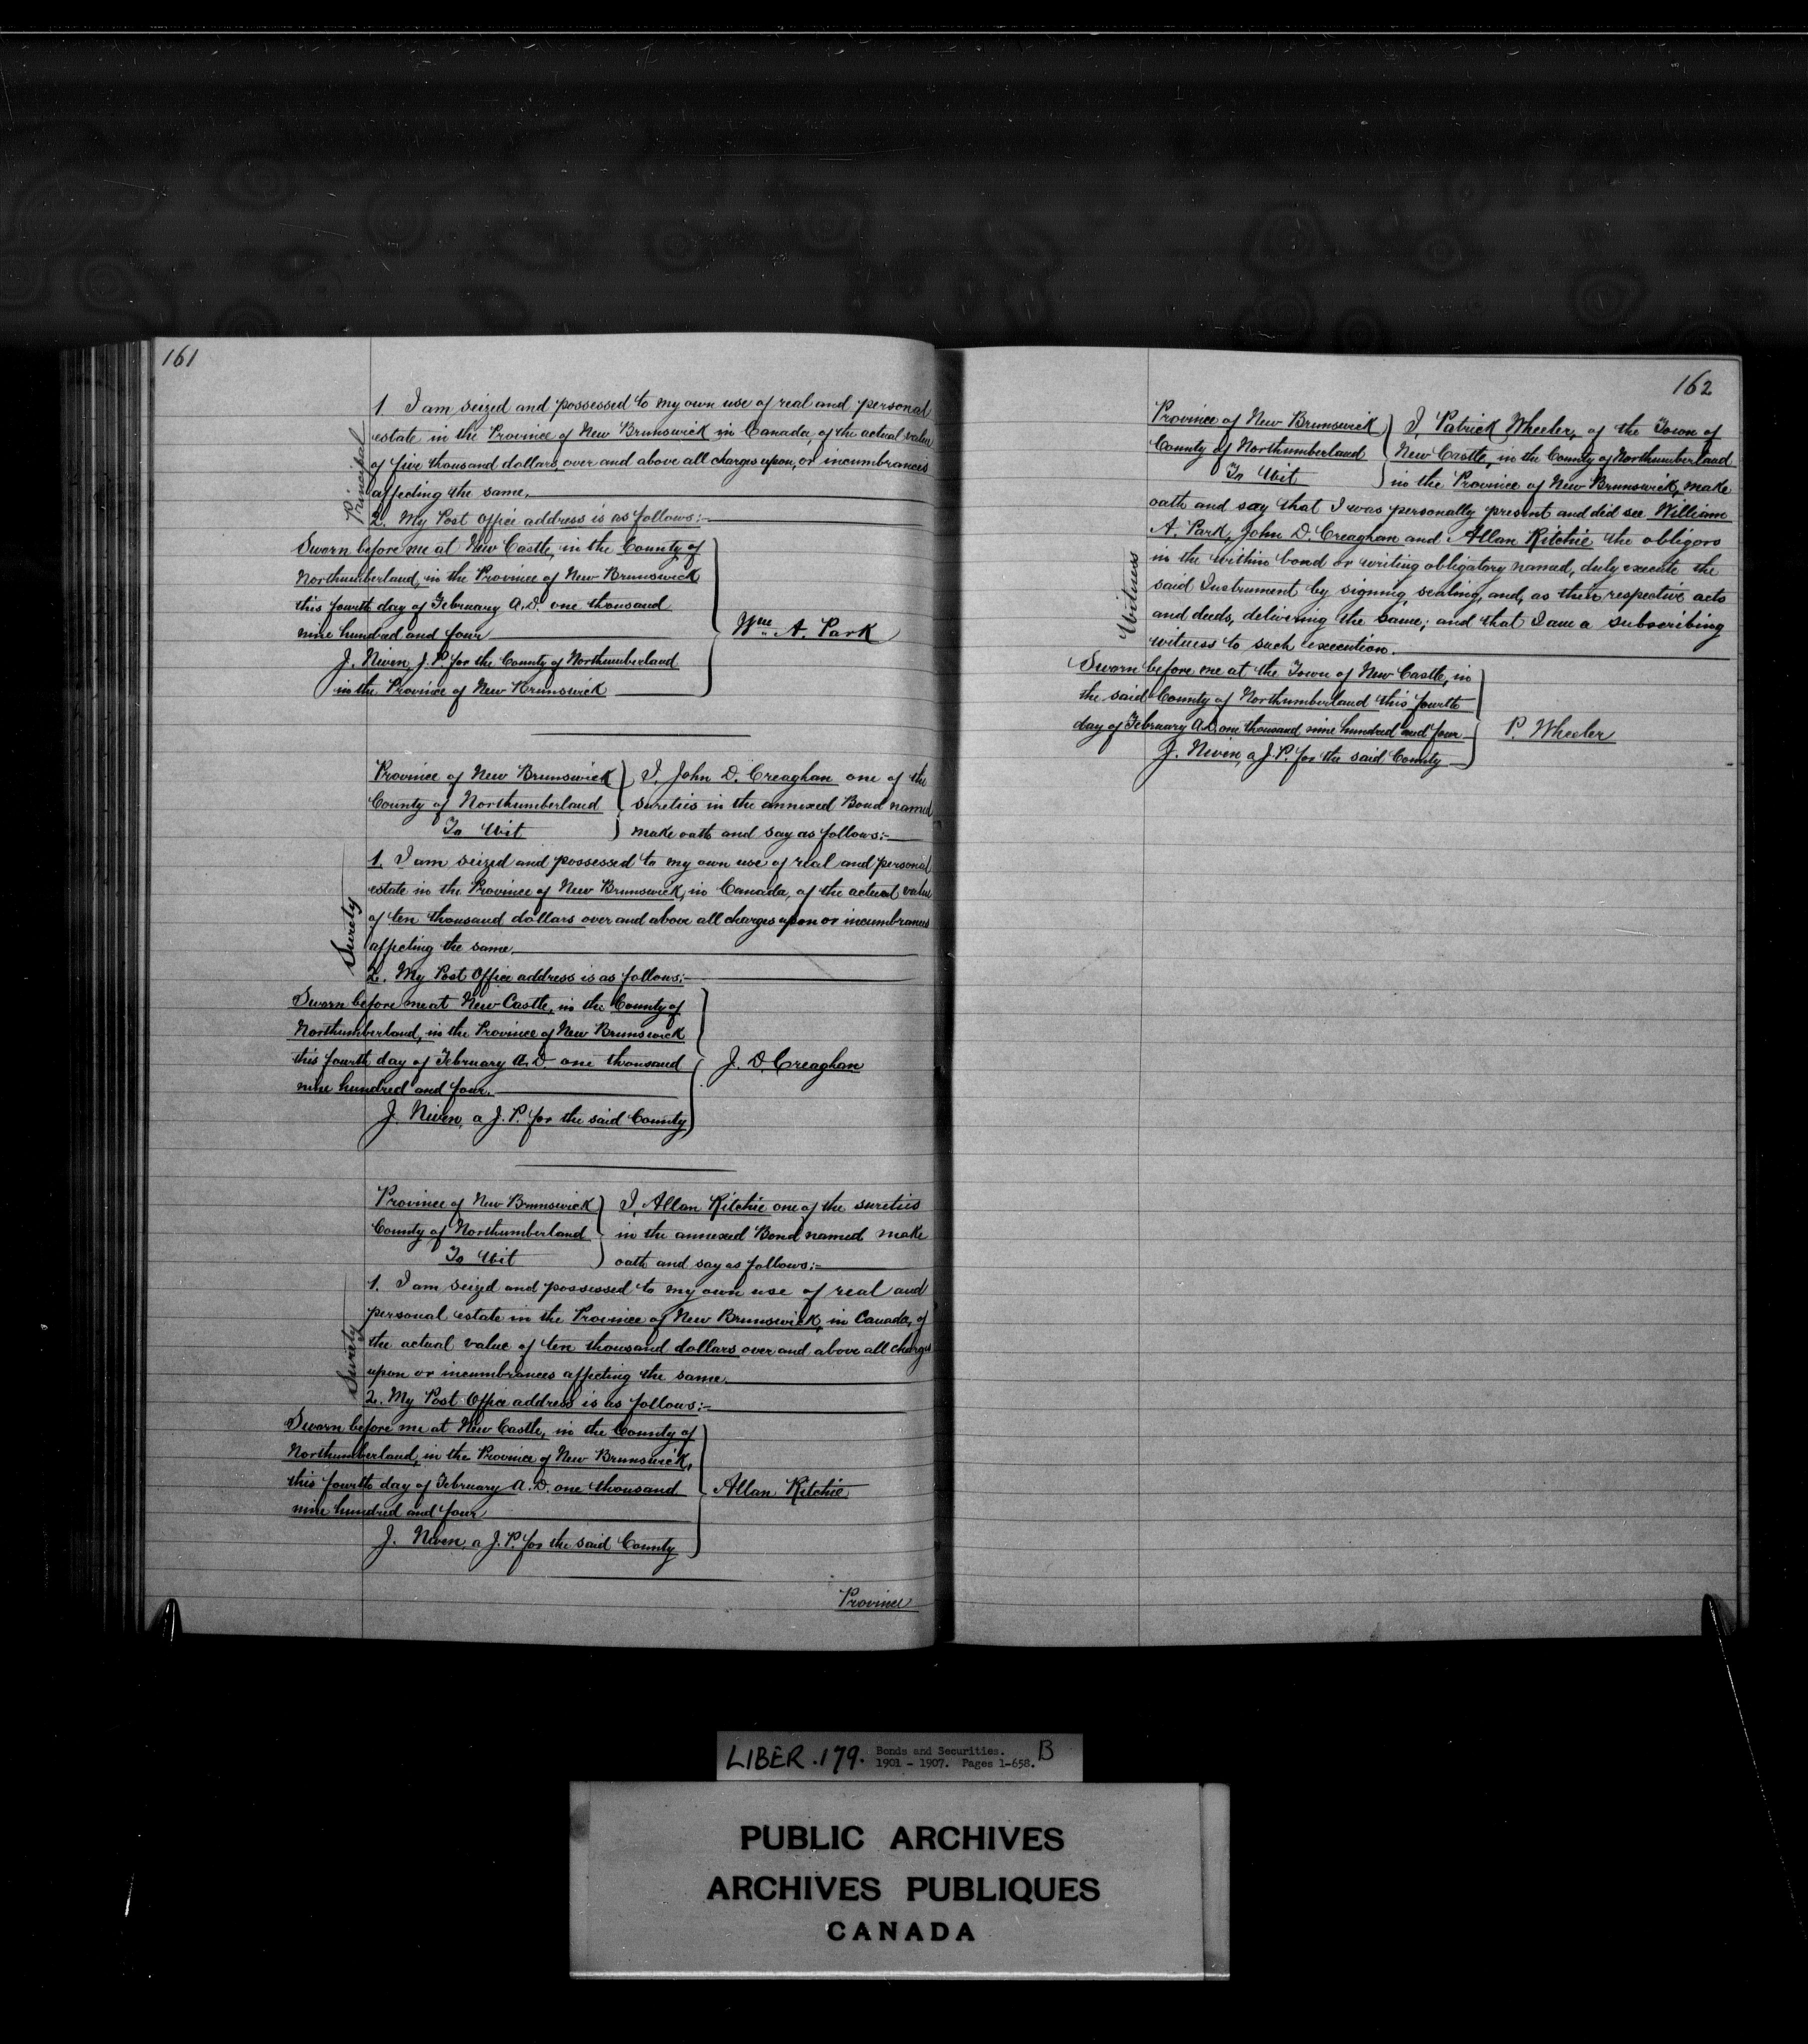 161
Principal
1. I am seized and possessed to my own use of real and personal
estate in the Province of New Brunswick in Canada, of the actual value
of five thousand dollars, over and above all charges upon, or incumbrances
affecting the same.
2. My Post Office address is as follows:-
Sworn before me at New Castle, in the County of
Northumberland, in the Province of New Brunswick
this fourth day of February A.D. one thousand
nine hundred and four
Wm A. Park
J. Niven, J.P. for the County of Northumberland
in the Province of New Brunswick
Province of New Brunswick
County of Northumberland
To Wit
I, John D. Creaghan one of the
sureties in the annexed Bond named
make oath and say as follows:-
Surety
1. I am seized and possessed to my own use of real and personal
estate in the Province of New Brunswick, in Canada, of the actual value
of ten thousand dollars over and above all charges upon or incumbrances
affecting the same.
2. My Post Office address is as follows:-
Sworn before me at New Castle, in the County of
Northumberland, in the Province of New Brunswick
this fourth day of February A.D. one thousand
nine hundred and four.
J. D. Creaghan
J. Niven, a J.P. for the said County
Province of New Brunswick
County of Northumberland
To Wit
I, Allan Ritchie one of the sureties
in the annexed Bond named make
oath and say as follows:-
Surety
1. I am seized and possessed to my own use of real and
personal estate in the Province of New Brunswick, in Canada, of
the actual value of ten thousand dollars over and above all charges
upon or incumbrances affecting the same.
2. My Post Office address is as follows:-
Sworn before me at New Castle, in the County of
Northumberland, in the Province of New Brunswick,
this fourth day of February A.D. one thousand
nine hundred and four
Allan Ritchie
J. Niven, a J.P. for the said County
Province
162
Province of New Brunswick
County of Northumberland
To Wit
I, Patrick Wheeler, of the Town of
New Castle, in the County of Northumberland
in the Province of New Brunswick, make
Witness
oath and say that I was personally present and did see William
A. Park, John D. Creaghan and Allan Ritchie the obligors
in the within bond or writing obligatory named, duly execute the
said Instrument by signing, sealing, and, as their respective acts
and deeds, delivering the same; and that I am a subscribing
witness to such execution.
Sworn before me at the Town of New Castle, in
the said County of Northumberland this fourth
day of February A.D. one thousand nine hundred and four
P. Wheeler
J. Niven, a J.P. for the said County
LIBER. 179. Bonds and Securities. B
1901 - 1907. Pages 1-658.
PUBLIC ARCHIVES
ARCHIVES PUBLIQUES
CANADA